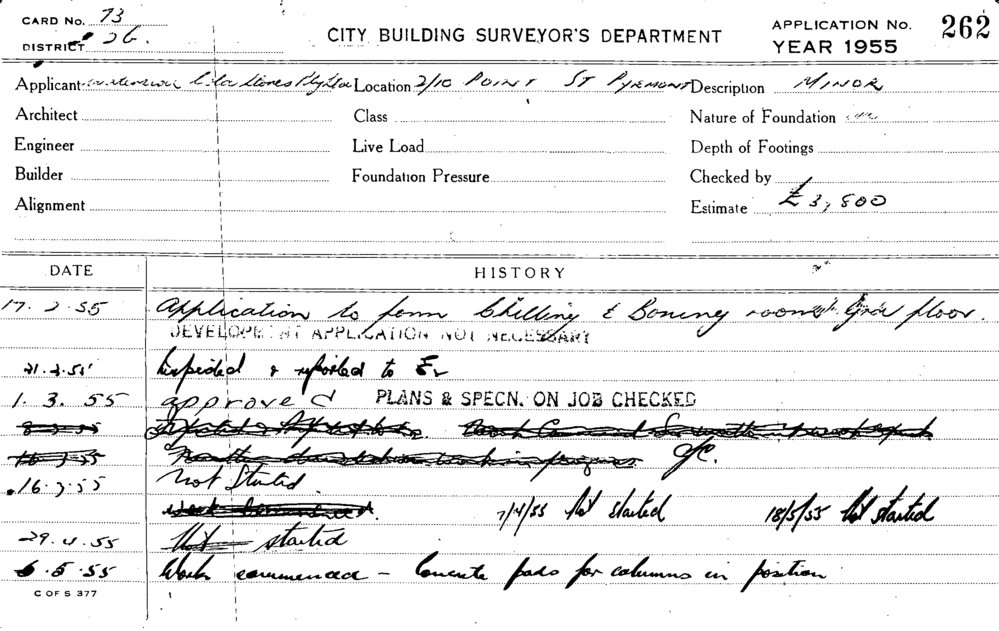 CARD No. 73
DISTRICT 26.
CITY BUILDING SURVEYOR'S DEPARTMENT
APPLICATION No. 262
YEAR 1955
Applicant Location 2/10 POINT ST PYRMONT Description MINOR
Architect Class Nature of Foundation
Engineer Live Load Depth of Footings
Builder Foundation Pressure Checked by
Alignment Estimate £3,800
DATE HISTORY
17. 2. 55 Application to form Chilling & Boning rooms Grd floor.
DEVELOPMENT APPLICATION NOT NECESSARY
21. 2. 55 Inspected & reported to
1. 3. 55 approved PLANS & SPECN. ON JOB CHECKED
16. 3. 55 Not Started
Work Commenced. 7/4/55 Not started 18/5/55 Not started
29. 4. 55 Not started
6. 5. 55 Work commenced – Concrete pads for columns in position
C OF S 377